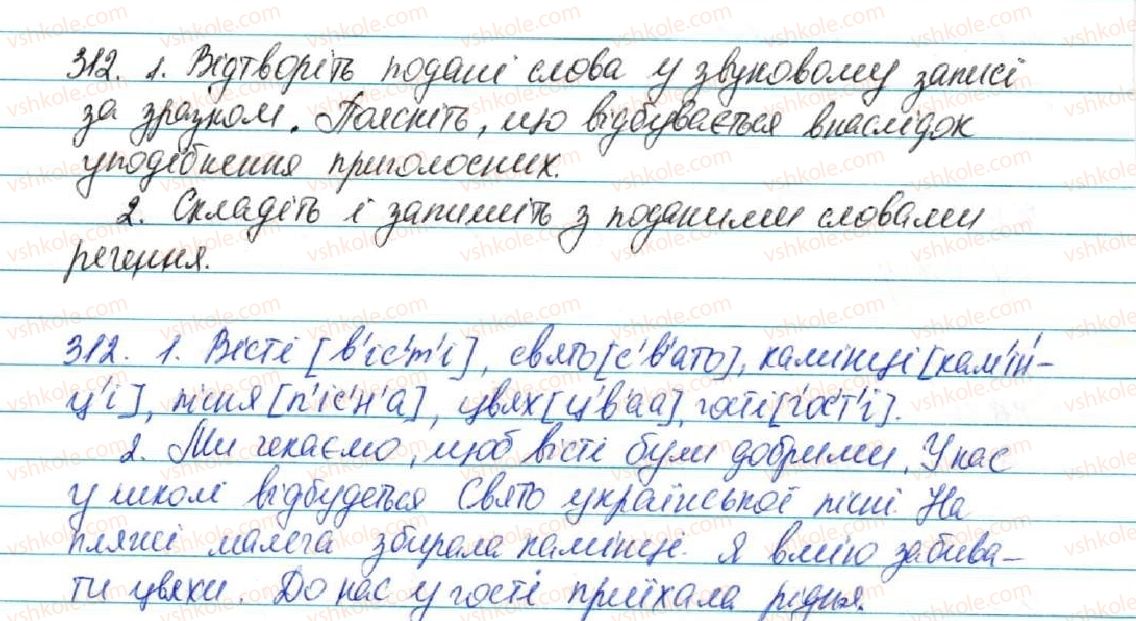 312. 1. Відтворіть подані слова у звуковому записі
за зразком. Поясніть, що відбувається внаслідок
уподібнення приголосних.
2. Складіть і запишіть з поданими словами
речення.
312. 1. Вісті [в'іс'т'і], свято [с'в'ато], камінці [кам'ін'-
ц'і], пісня [п'іс'н'а], цвях [ц'в'аа], гості [гос'т'і].
2. Ми чекаємо, щоб вісті були добрими. У нас
у школі відбудеться Свято української пісні. На
пляжі малеча збирала камінці. Я вмію забива-
ти цвяхи. До нас у гості приїхала рідня.